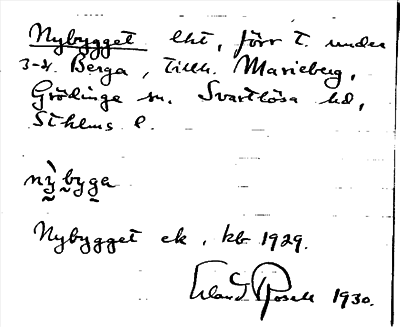 Nybygget lht, förr t. under
3-4. Berga, tillh. Marieberg,
Grödinge sn. Svartlösa hd,
Sthlms l.
nỳbyga
Nybygget ek, kb 1929.
Erland Rosell 1930.